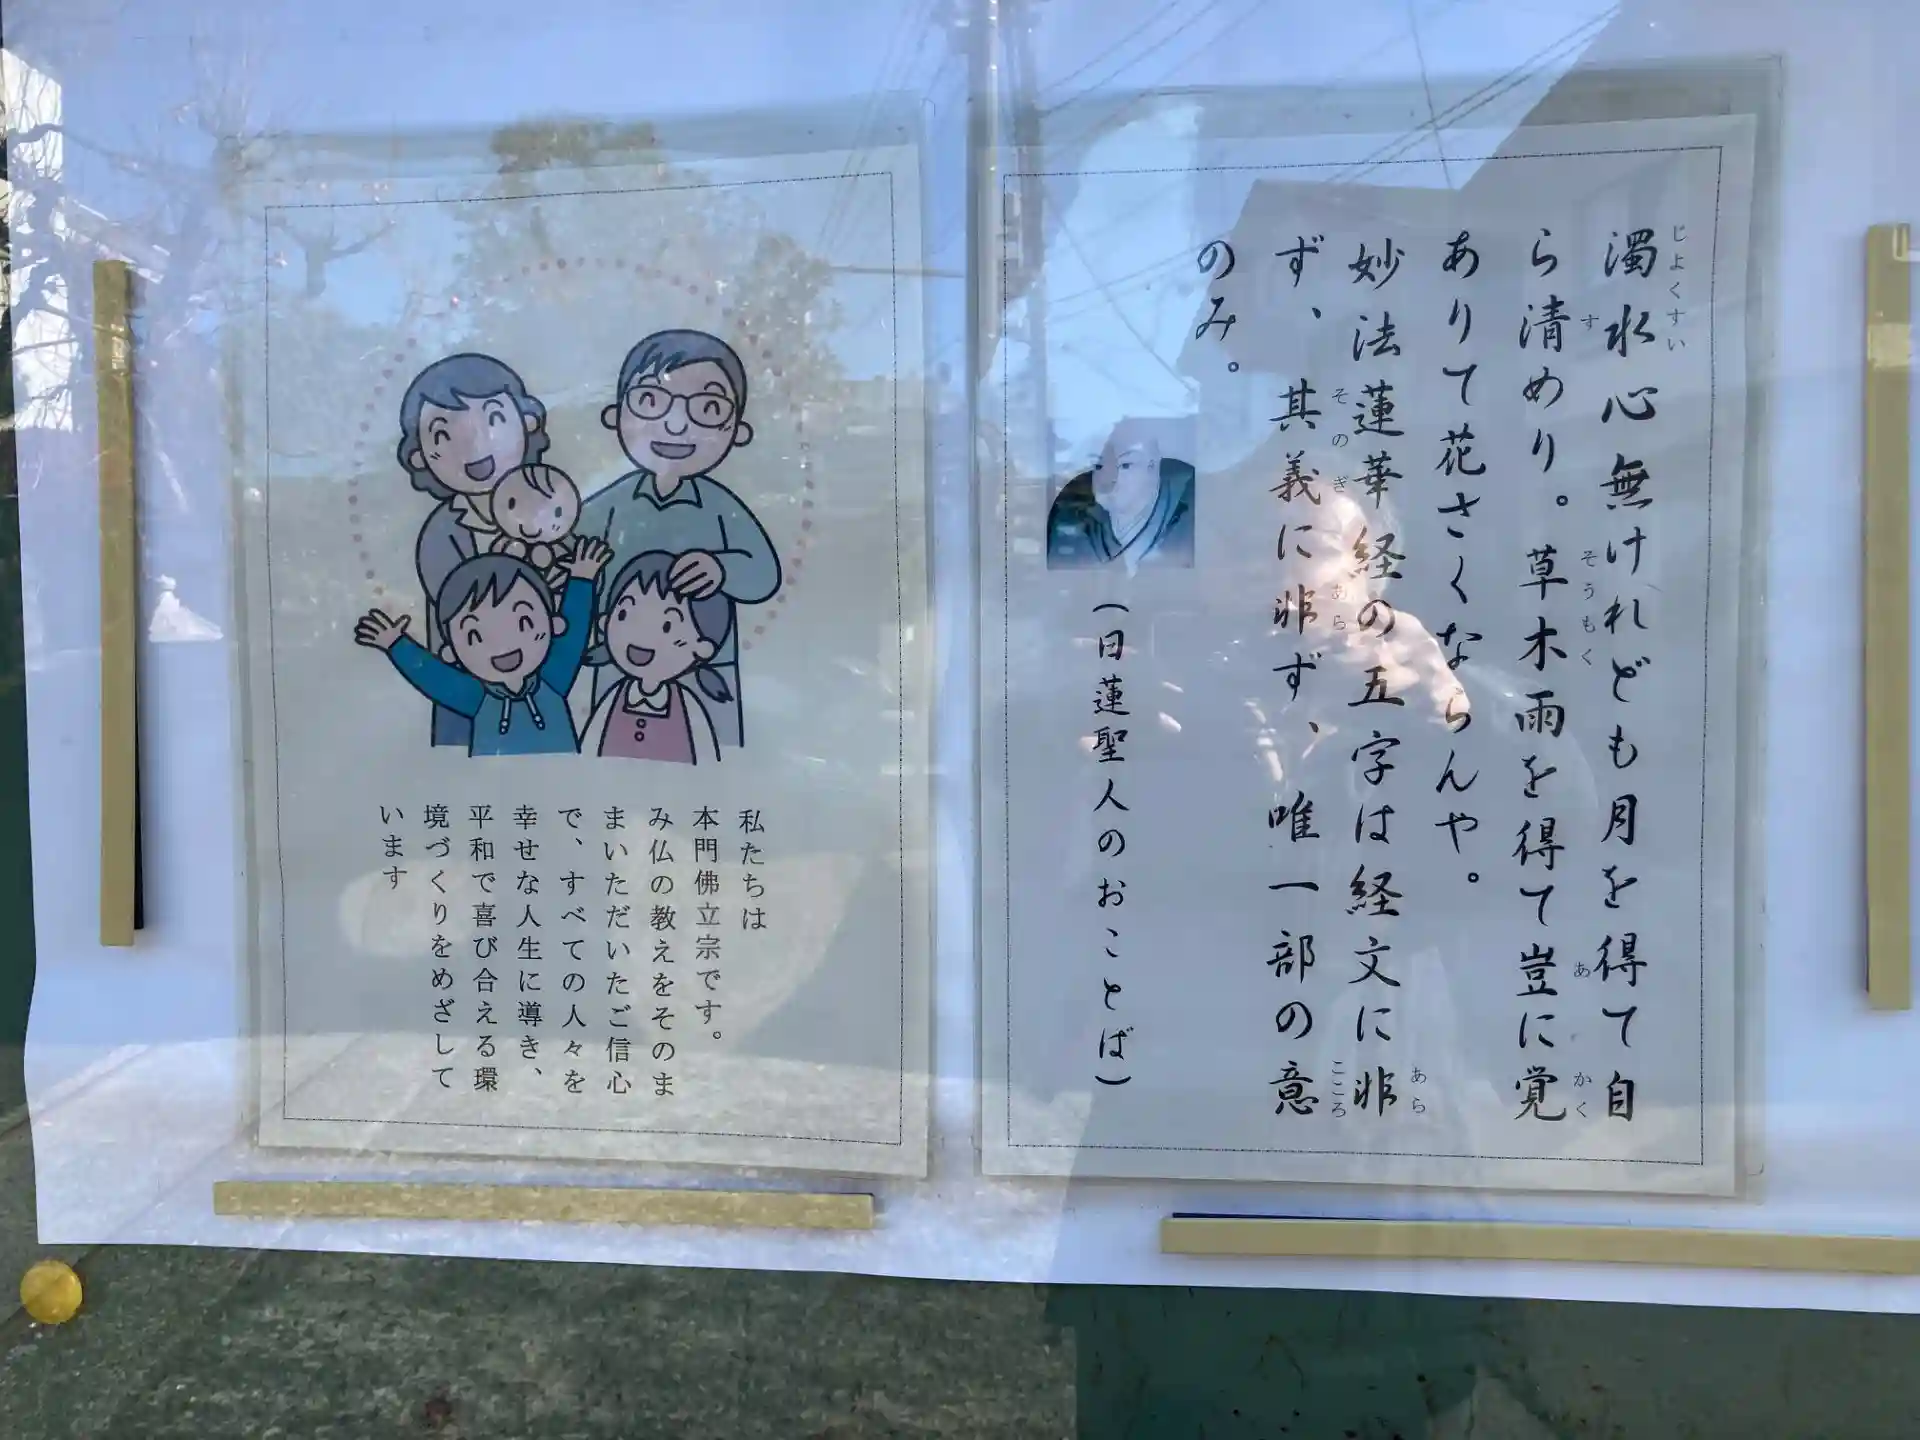 濁水心無けれども月を得て自
ら清めり。草木雨を得て豈に覚
ありて花さくならんや。
妙法蓮華経の五字は経文に非
ず、其義に非ず、唯一部の意
のみ。
じよくすい
す
そうもく
あ
かく
あら
そのぎ
あら
こころ
(日蓮聖人のおことば)
私たちは
本門佛立宗です。
み仏の教えをそのま
まいただいたご信心
で、すべての人々を
幸せな人生に導き、
平和で喜び合える環
境づくりをめざして
います